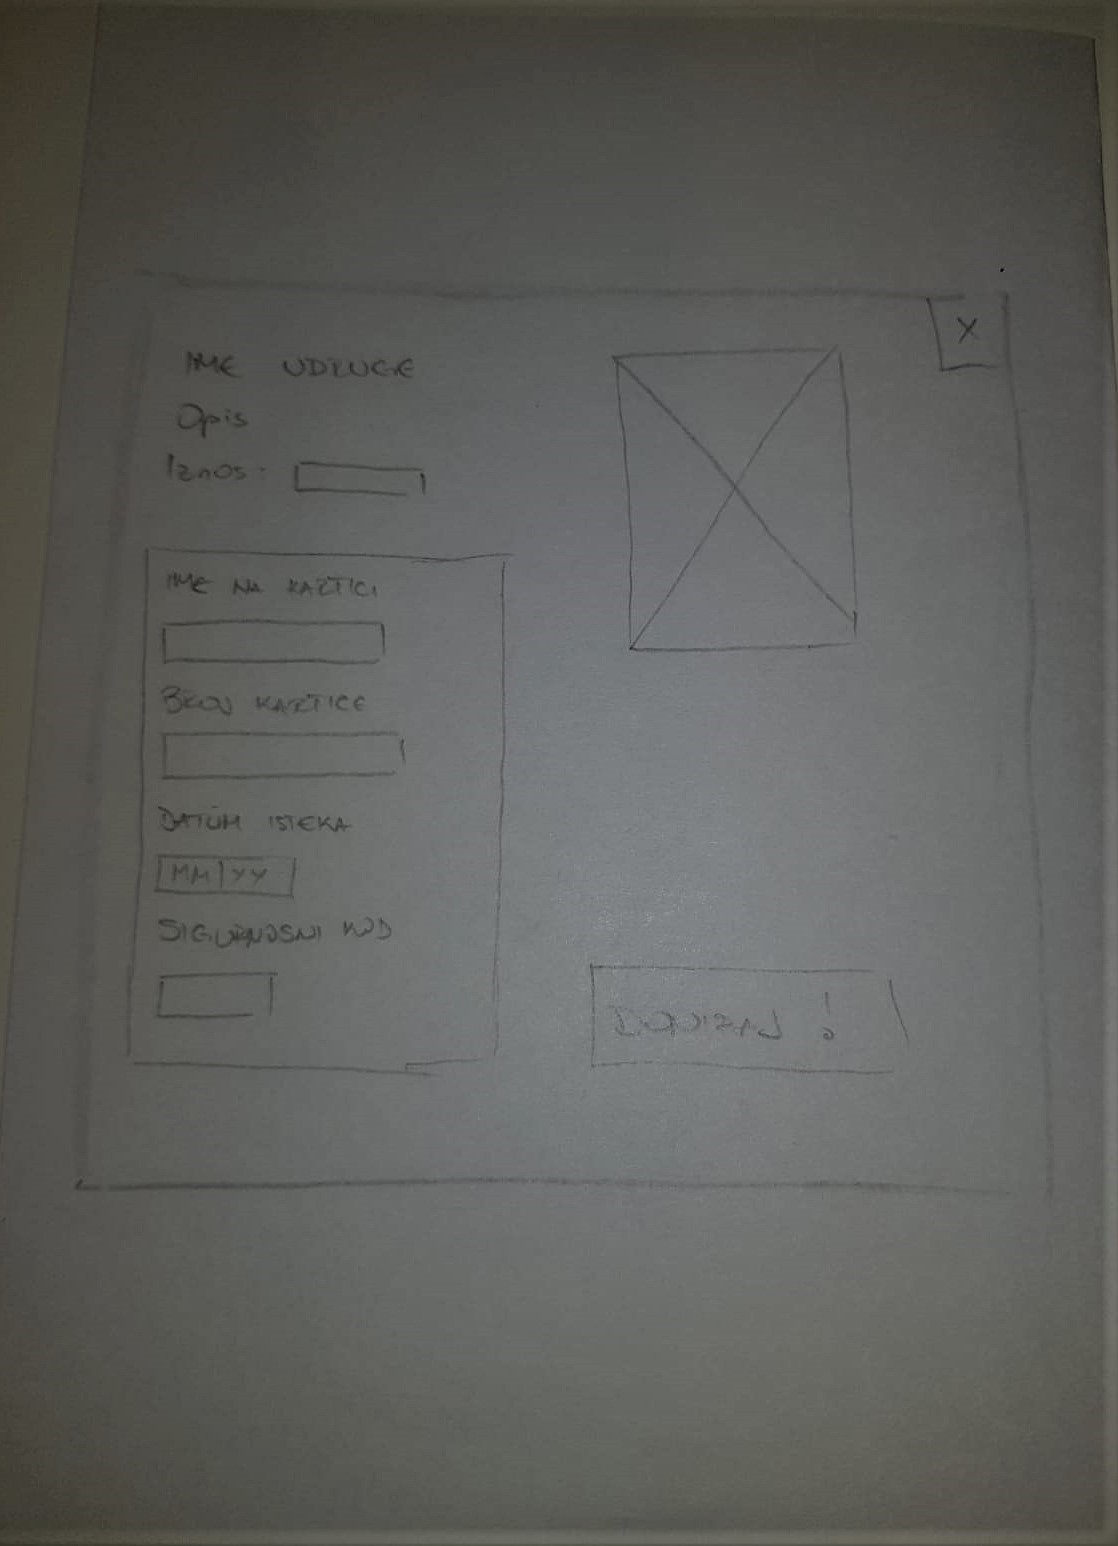 X
IME UDRUGE
Opis
Iznos:
IME NA KARTICI
BROJ KARTICE
DATUM ISTEKA
MM|YY
SIGURNOSNI KOD
DONIRAJ !